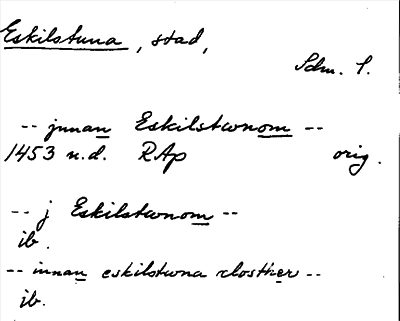 Eskilstuna, stad,
Sdm. l.
-- jnnan Eskilstwnom --
1453 u.d. RAp orig.
-- j Eskilstwnom --
ib.
-- innan eskilstwna closther --
ib.